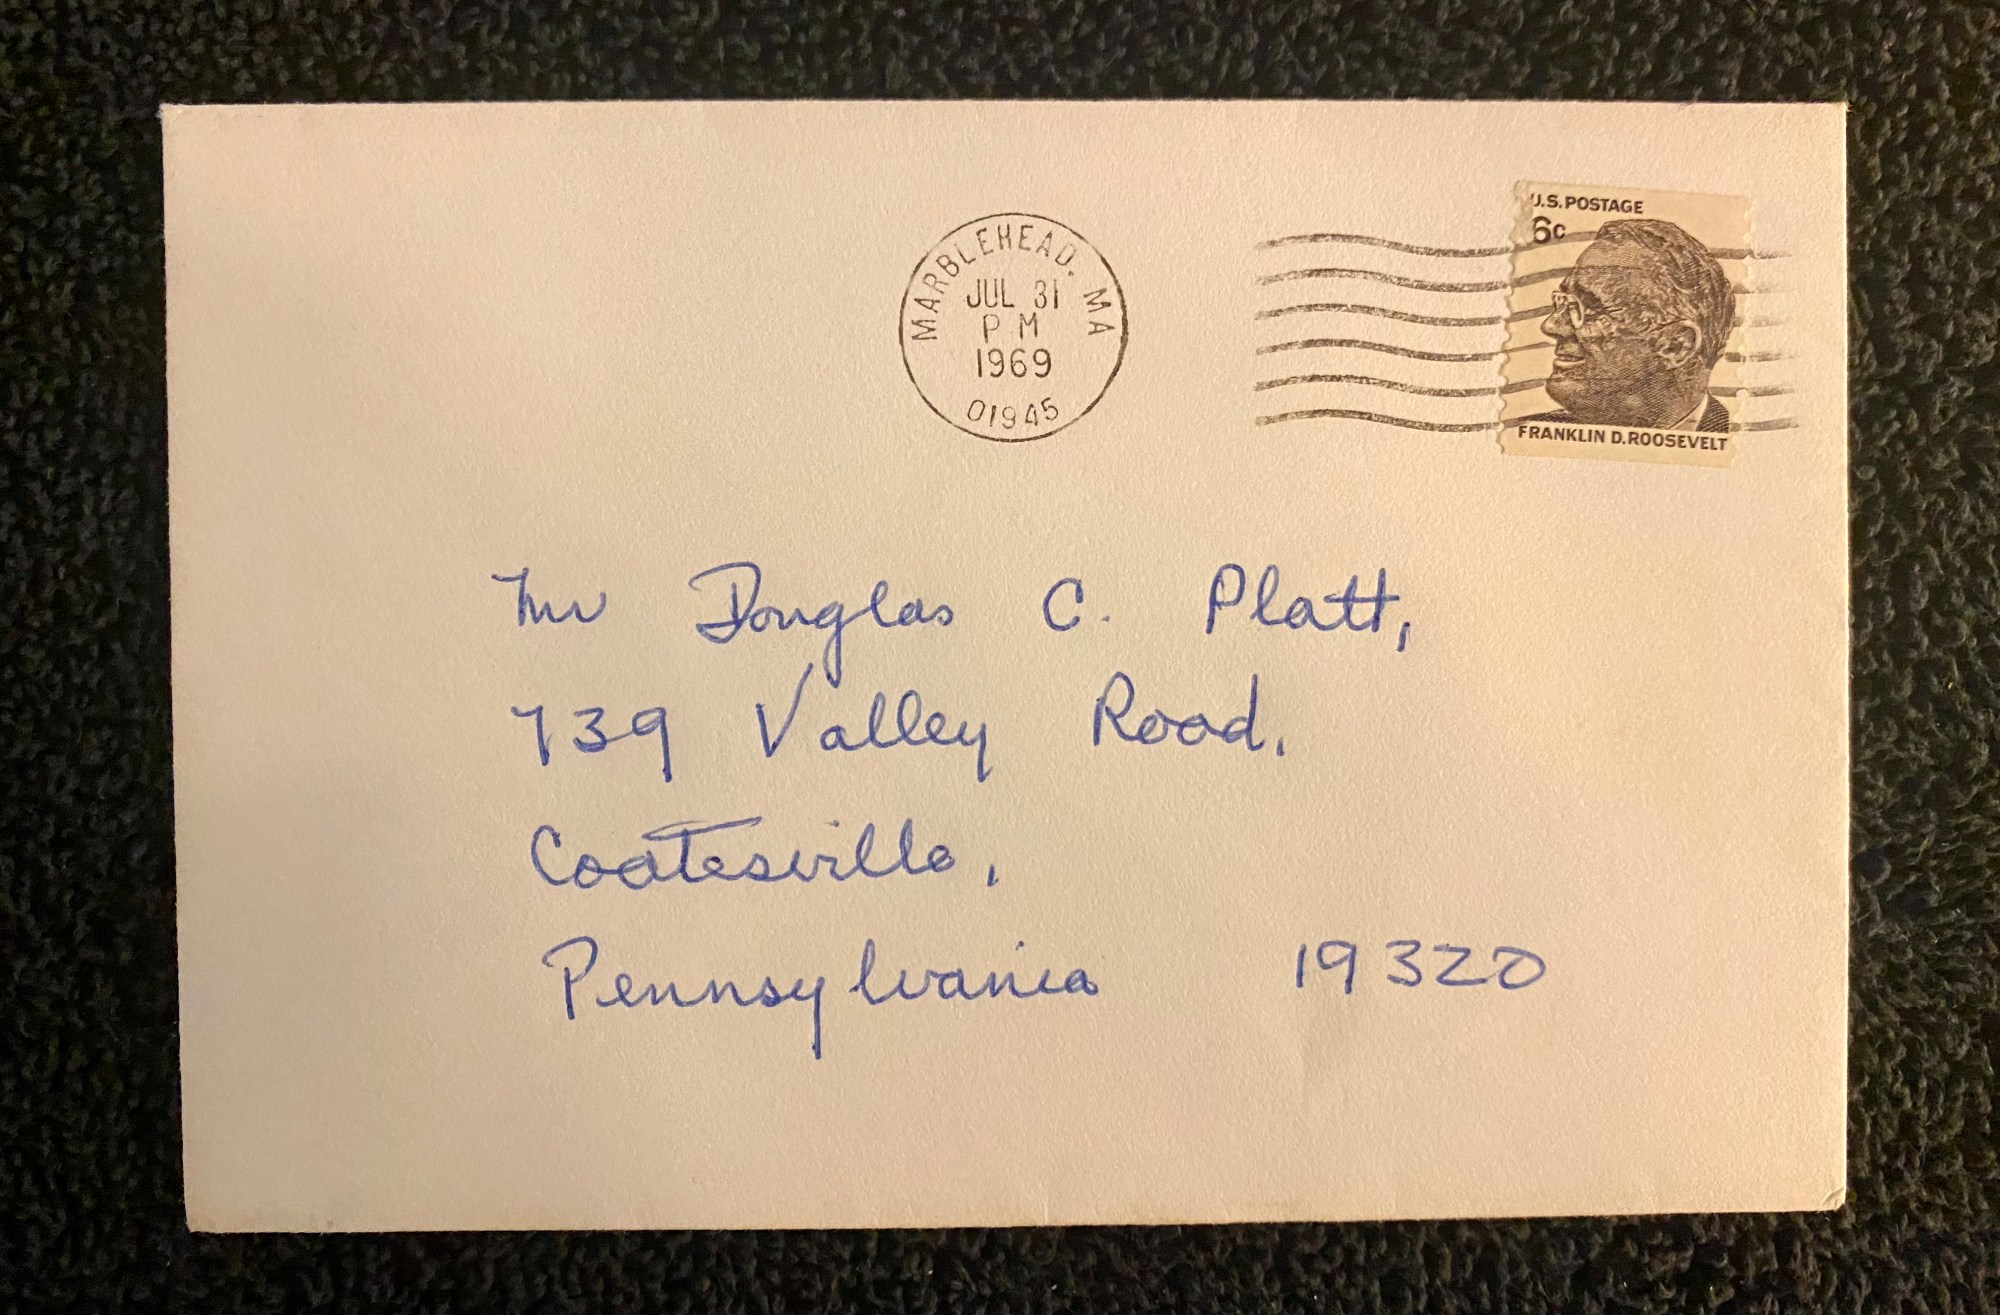 MARBLEHEAD, MA
JUL 31
PM
1969
01945
U.S. POSTAGE
6c
FRANKLIN D. ROOSEVELT
Mr Douglas C. Platt,
739 Valley Road,
Coatesville,
Pennsylvania 19320